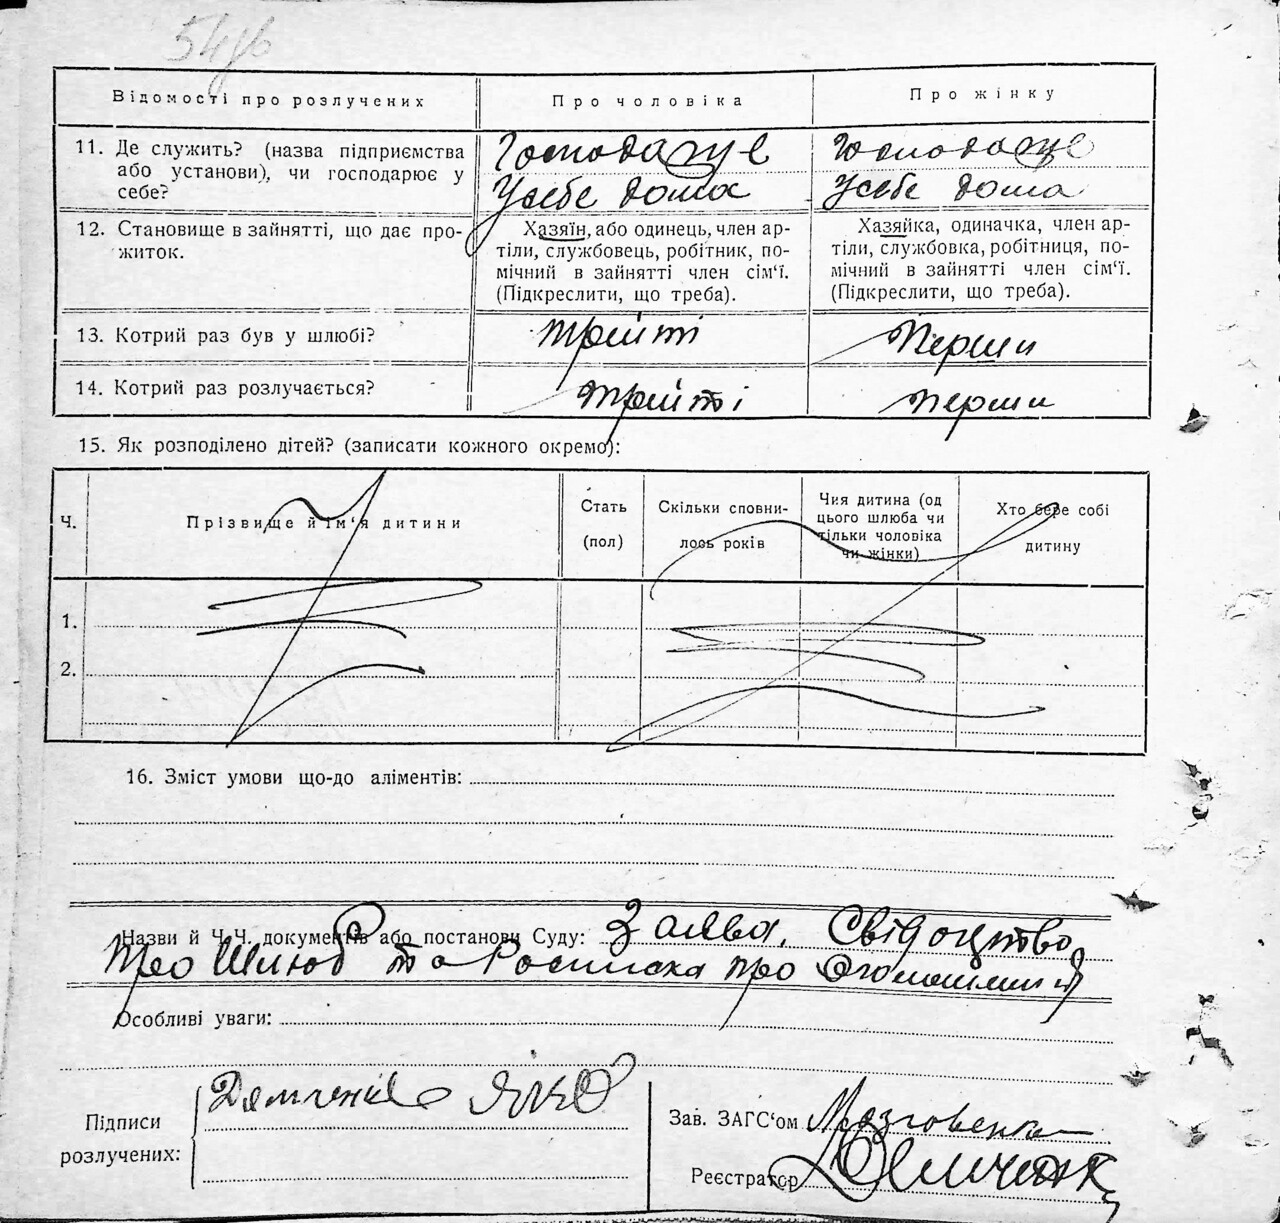 54зв
Відомості про розлучених
Про чоловіка
Про жінку
11. Де служить? (назва підприємства або установи), чи господарює у себе?
Господарує
Усебе дома
Господарує
Усебе дома
12. Становище в зайнятті, що дає прожиток.
Хазяїн, або одинець, член ар-
тіли, службовець, робітник, по-
мічний в зайнятті член сім‘ї.
(Підкреслити, що треба).
Хазяйка, одиначка, член ар-
тіли, службовка, робітниця, по-
мічний в зайнятті член сім‘ї.
(Підкреслити, що треба).
13. Котрий раз був у шлюбі?
трейті
перши
14. Котрий раз розлучається?
трейті
перши
15. Як розподілено дітей? (записати кожного окремо):
Ч.
Прізвище й ім‘я дитини
Стать
(пол)
Скільки сповни-
лось років
Чия дитина (од
цього шлюба чи
тільки чоловіка
чи жінки)
Хто бере собі
дитину
1.
2.
16. Зміст умови що-до аліментів:
Назви й Ч.Ч. документів або постанови Суду: Заява, Свідоцтво
про Шлюб та Росписка про
Особливі уваги:
Підписи
розлучених:
Демченко
Зав. ЗАГС‘ом Мазговенко
Реєстратор Демченк